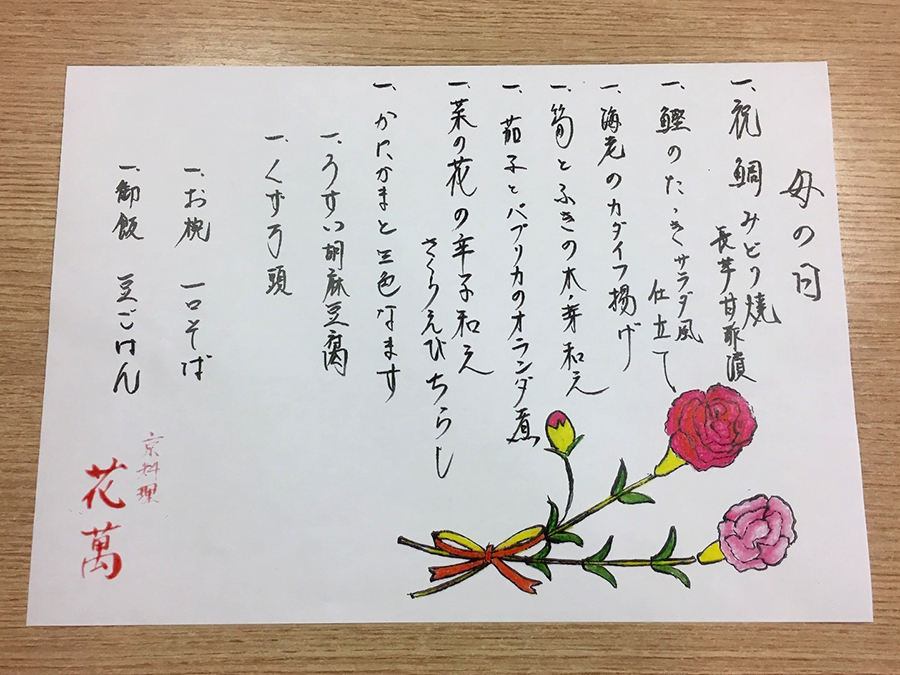 母の日
一、祝鯛みどり焼
長芋甘酢漬
一、鰹のたゝきサラダ風
仕立て
一、海老のカダイフ揚げ
一、筍とふきの木ノ芽和え
一、茄子とパプリカのオランダ煮
一、菜の花の辛子和え
さくらえびちらし
一、かたかまと三色なます
一、うすい胡麻豆腐
一、くず万頭
一、お椀 一口そば
一、御飯 豆ごはん
京料理
花萬